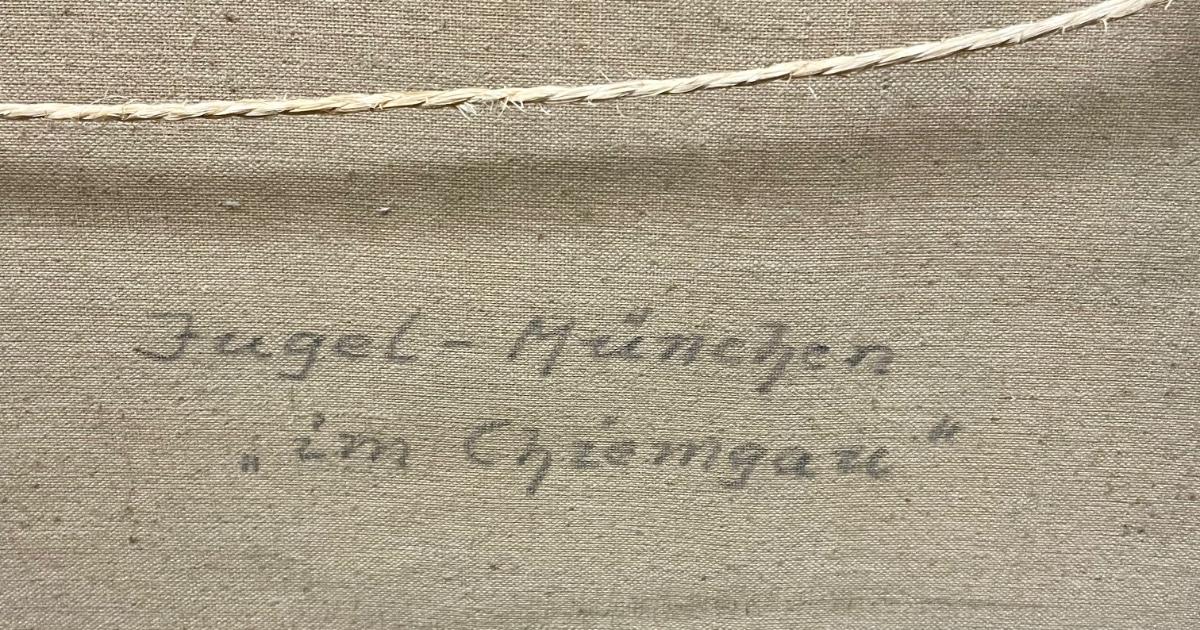 Jugel - München
„im Chiemgau“